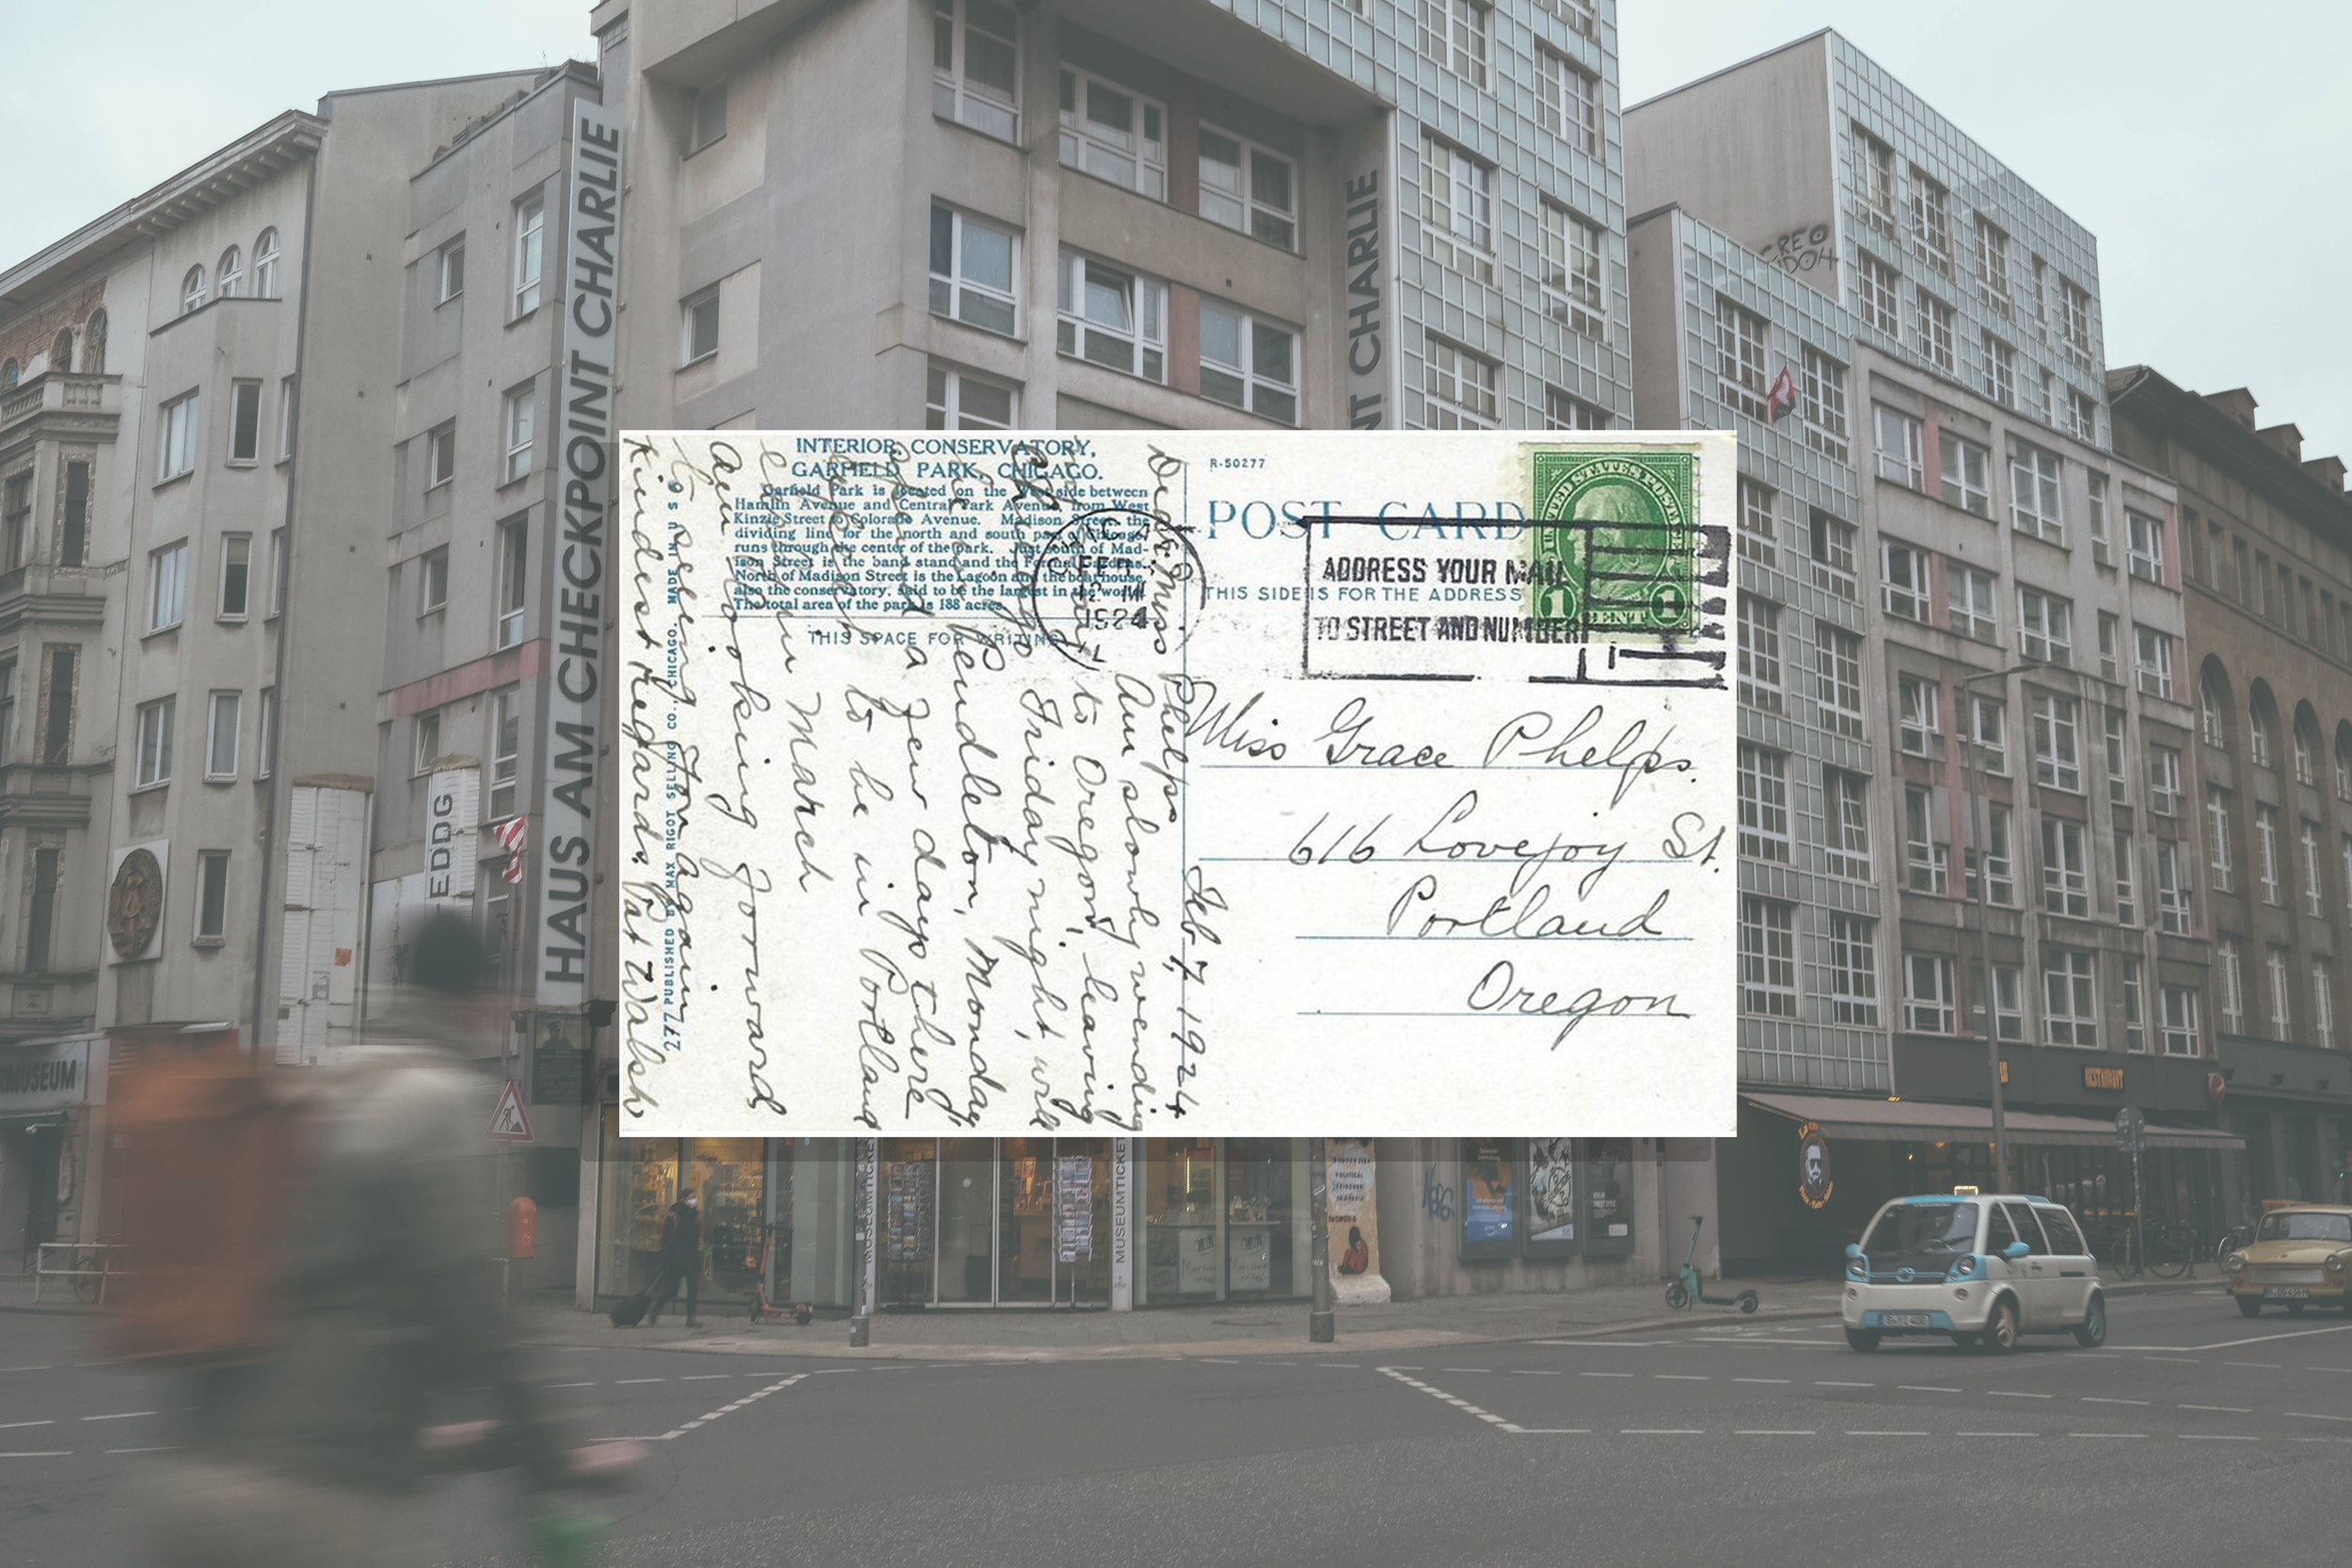 HAUS AM CHECKPOINT CHARLIE
NT CHARLIE
EDDG
RMUSEUM
RESTAURANT
MUSEUMTICKET
MUSEUMTICKET
INTERIOR, CONSERVATORY,
GARFIELD PARK, CHICAGO.
Garfield Park is located on the West side between
Hamlin Avenue and Central Park Avenue from West
Kinzie Street to Colorado Avenue. Madison Street, the
dividing line for the north and south part of Chicago,
runs through the center of the park. Just south of Mad-
ison Street is the band stand and the Formal Gardens.
North of Madison Street is the Lagoon and the boathouse,
also the conservatory, said to be the largest in the world.
The total area of the park is 188 acres.
THIS SPACE FOR WRITING
PUBLISHED BY MAX RIGOT SELLING CO., CHICAGO. MADE IN U S A
227
R-50277
POST CARD
THIS SIDE IS FOR THE ADDRESS
FEB
12 M
1924
ADDRESS YOUR MAIL
TO STREET AND NUMBER
UNITED STATES POSTAGE
1 CENT 1
Feb 7, 1924
Dear Miss Phelps
Am slowly wending
to Oregon, leaving
Chicago Friday night, will
be in Pendleton, Monday
spend a few days there,
to be in Portland
in March
Am looking forward
to seeing you again
Kindest Regards. Pat Walsh
Miss Grace Phelps.
616 Lovejoy St.
Portland
Oregon